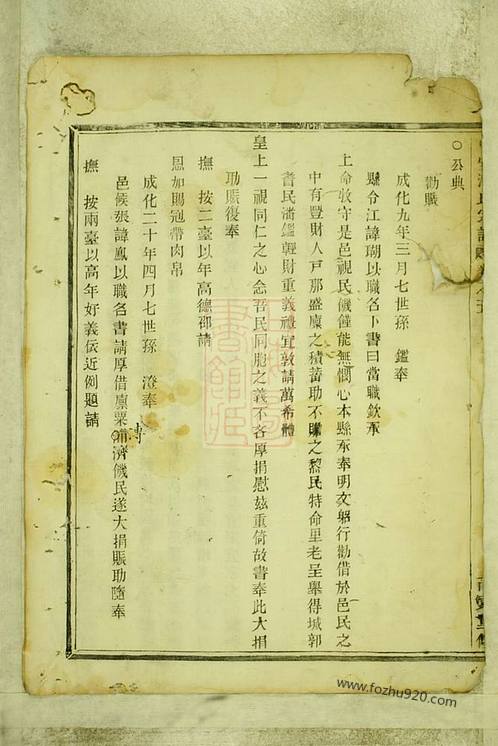 ○公典
勸職
成化九年三月七世孫 鑑奉
縣令江諱瑚以職名卜書曰當職欽承
上命敬守是邑視民饑饉能無憫心本縣承奉明文躬行勸借於邑民之
中有豐財人戸那盛廩之積蓄助不贍之黎民特命里老呈舉得城郭
耆民潘鑑輕財重義禮宜敦請萬希體
皇上一視同仁之心念吾民同胞之義不吝厚捐慰茲重倚故書奉此大捐
助賑復奉
撫 按二臺以年高德邵請
恩如賜冠帶肉帛
成化二十年四月七世孫 澄奉
邑候張諱鳳以職名書請厚借廩粟溥濟饑民遂大捐賑助隨奉
撫 按兩臺以高年好義依近例題請
溥
www.fozhu920.com